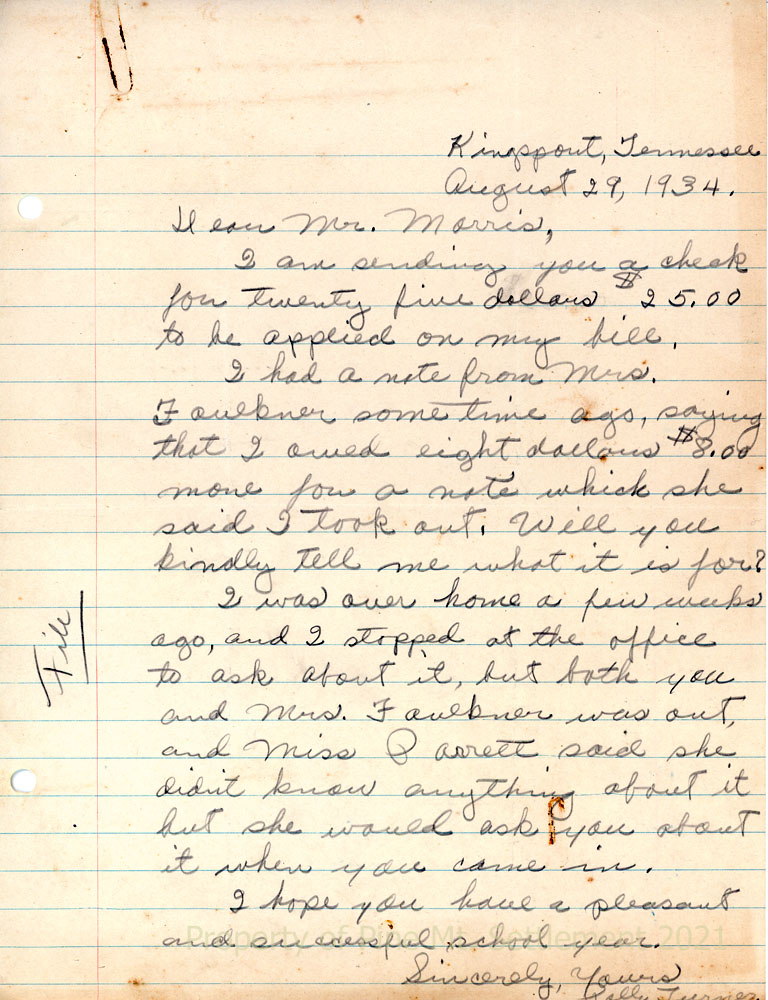 Kingsport, Tennessee
August 29, 1934.
Dear Mr. Morris,
I am sending you a check
for twenty five dollars $25.00
to be applied on my bill.
I had a note from Mrs.
Faulkner some time ago, saying
that I owed eight dollars $8.00
more for a note which she
said I took out. Will you
kindly tell me what it is for?
I was over home a few weeks
ago, and I stopped at the office
to ask about it, but both you
and Mrs. Faulkner was out,
and Miss Parrett said she
didn't know anything about it
but she would ask you about
it when you came in.
I hope you have a pleasant
and successful school year.
Sincerely, Yours
Sally Turner
File
Property of Pine Mt. Settlement 2021